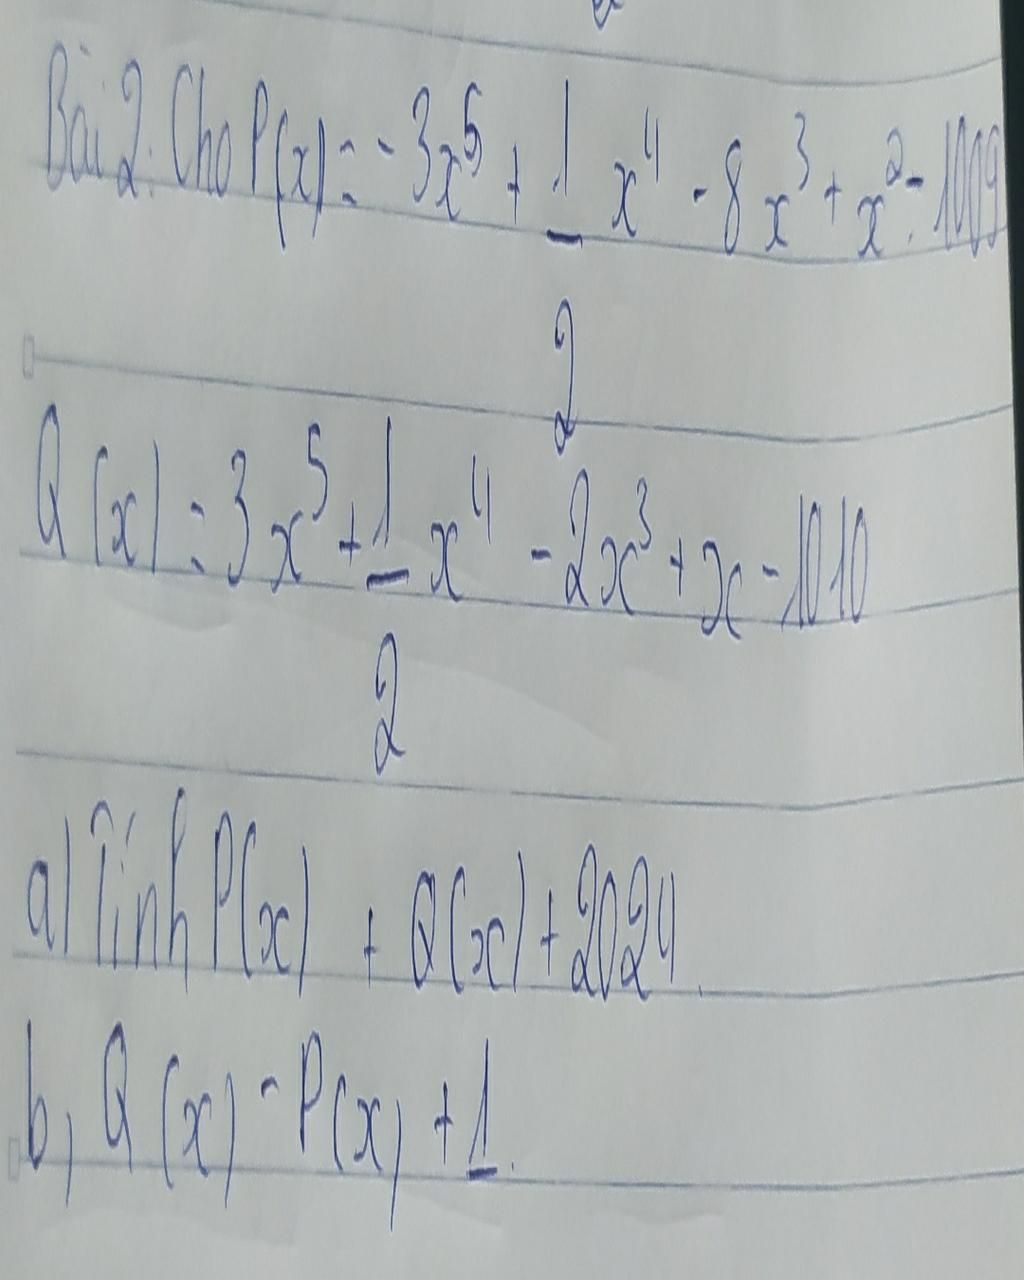 Bài 2: Cho P(x) = -3x⁵ + 1/2 x⁴ - 8x³ + x² - 1009
Q(x) = 3x⁵ + 1/2 x⁴ - 2x³ + x - 1010
a) Tính P(x) + Q(x) + 2024.
b, Q(x) - P(x) + 1.